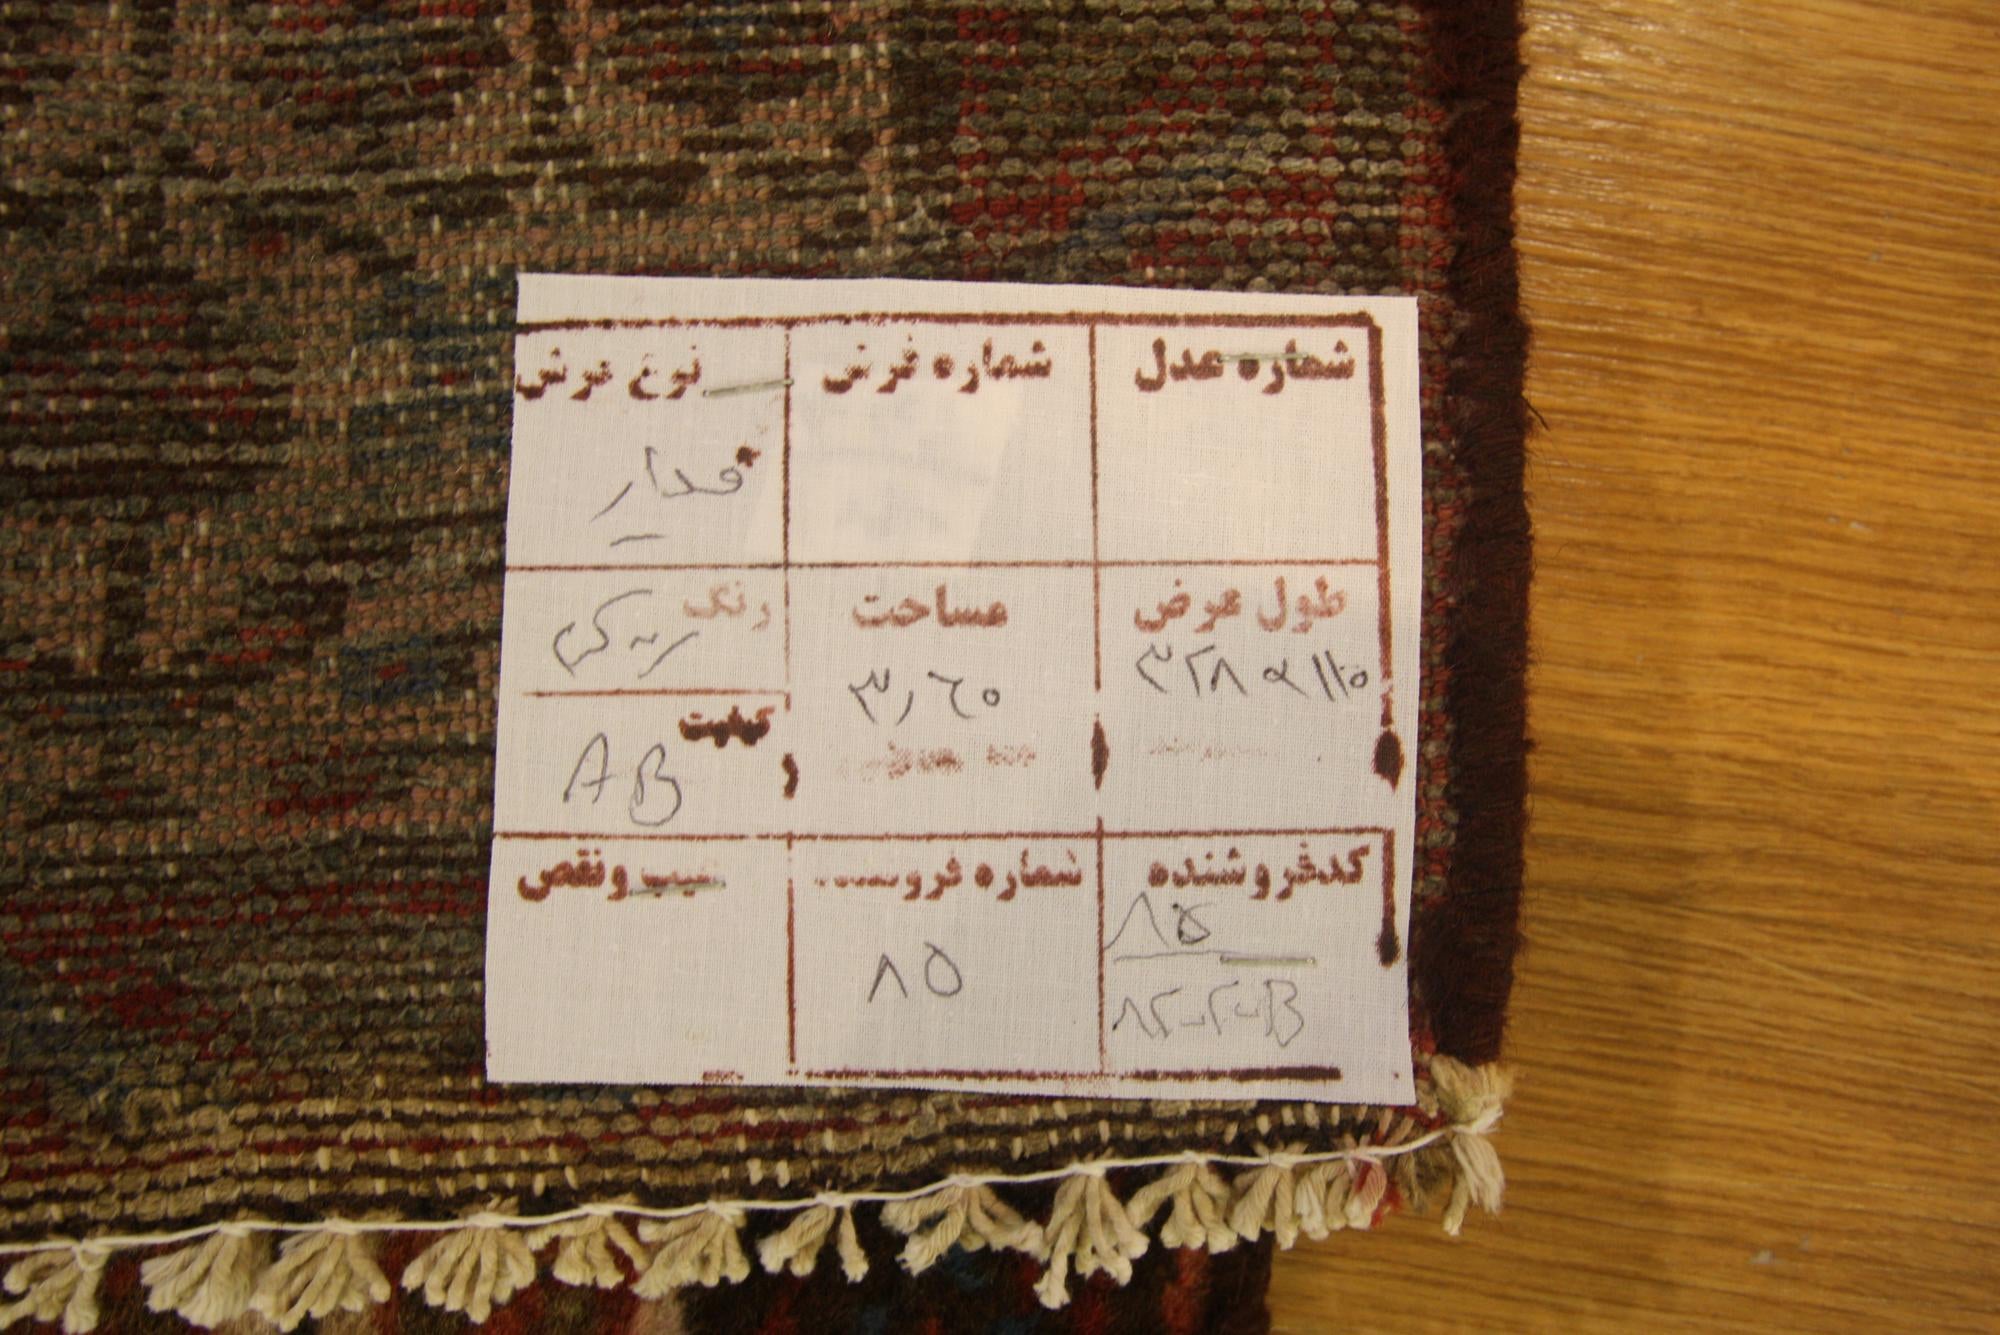 شماره عدل
شماره فرش
نوع فرش
طول عرض
۳۲۸ × ۱۱۰
مساحت
۳٫۶۰
رنگ
کیفیت
AB
کد فروشنده
۸۵
شماره فروشنده
۸۵
عیب و نقص